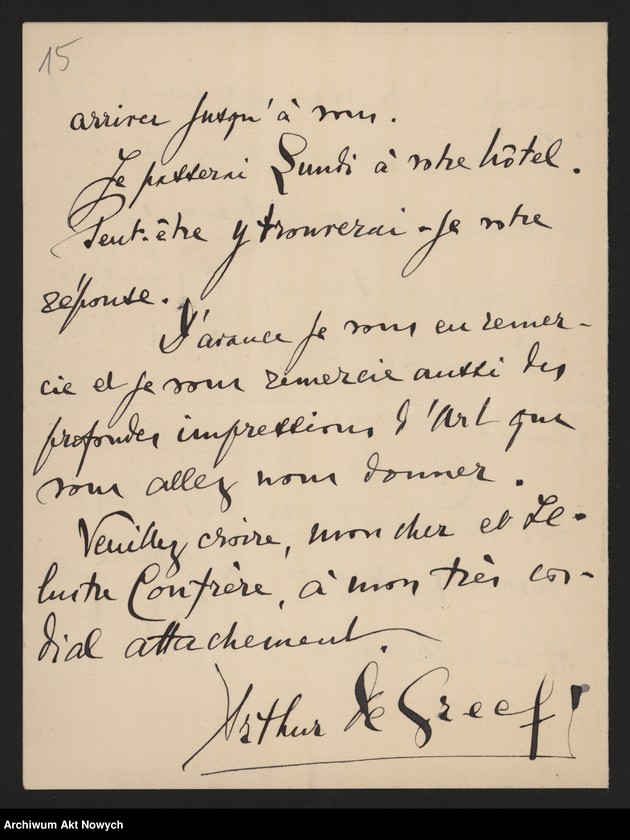 15
arriver jusqu'à vous.
Je passerai Lundi à votre hôtel.
Peut-être y trouverai-je votre
réponse.
D'avance je vous en remer-
cie et je vous remercie aussi des
profondes impressions d'Art que
vous allez nous donner.
Veuillez croire, mon cher et Il-
lustre Confrère, à mon très cor-
dial attachement.
Arthur De Greef
Archiwum Akt Nowych